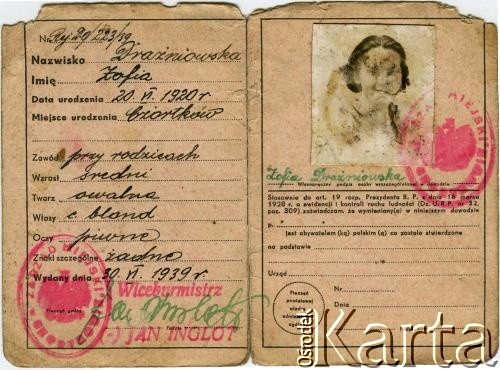 Nr. Rej 29/223/39
Nazwisko Draźniowska
Imię Zofia
Data urodzenia 20. VI. 1920 r
Miejsce urodzenia Czortków
Zawód przy rodzicach
Wzrost średni
Twarz owalna
Włosy c. blond
Oczy piwne
Znaki szczególne żadne
Wydany dnia 30. VI. 1939 r.
Wiceburmistrz
Pieczęć gminy
(-) JAN INGLOT
Zofia Draźniowska
Własnoręczny podpis osoby wyszczególnionej w dowodzie
Stosownie do art. 19 rozp. Prezydenta R. P. z dnia 16 marca
1928 r. o ewidencji i kontroli ruchu ludności (Dz. U. R. P. nr 32,
poz. 309) zaświadczam, że wymieniony(a) w niniejszym dowodzie
p.
jest obywatelem (ką) polskim (ą) co zostało stwierdzone
na podstawie
Urząd
Nr.
Dnia
Pieczęć
powiatowej
władzy
Ośrodek
Karta